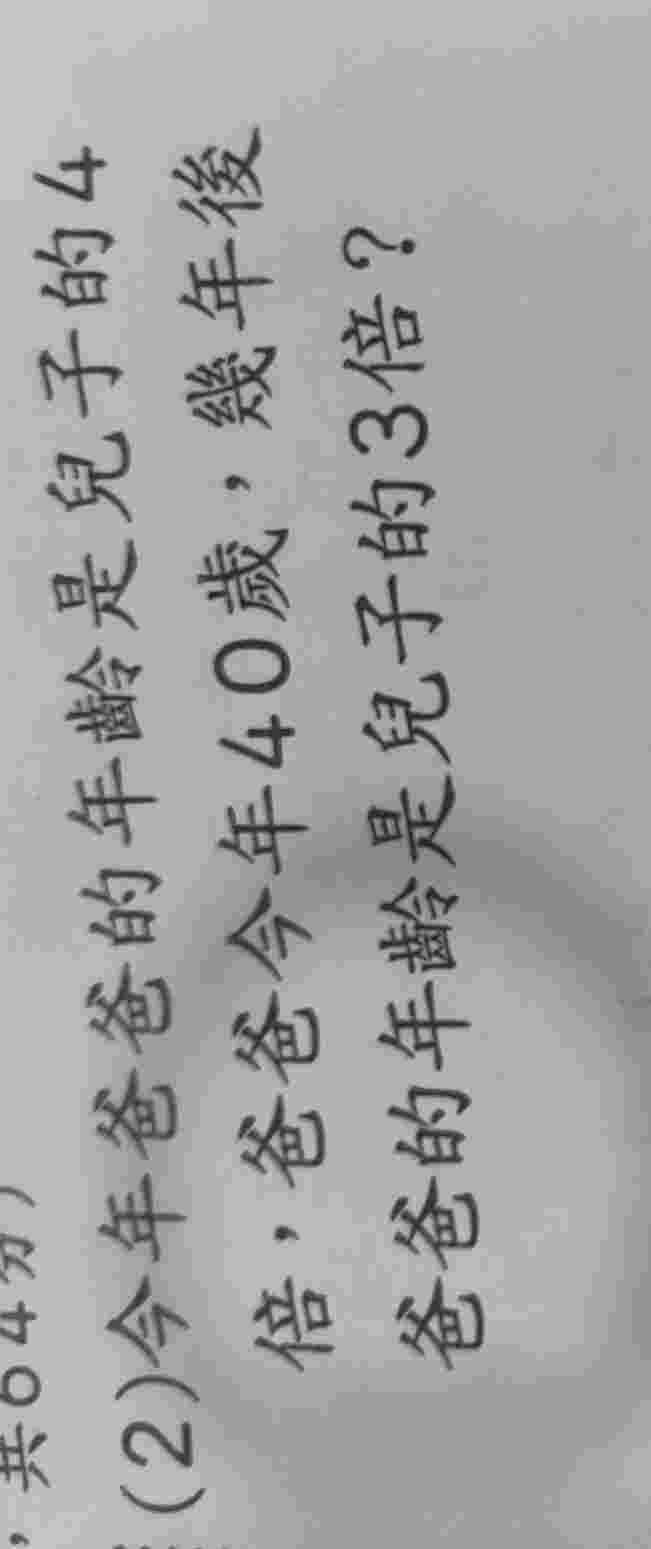 ，共64分）
(2)今年爸爸的年齡是兒子的4
倍，爸爸今年40歲，幾年後
爸爸的年齡是兒子的3倍？